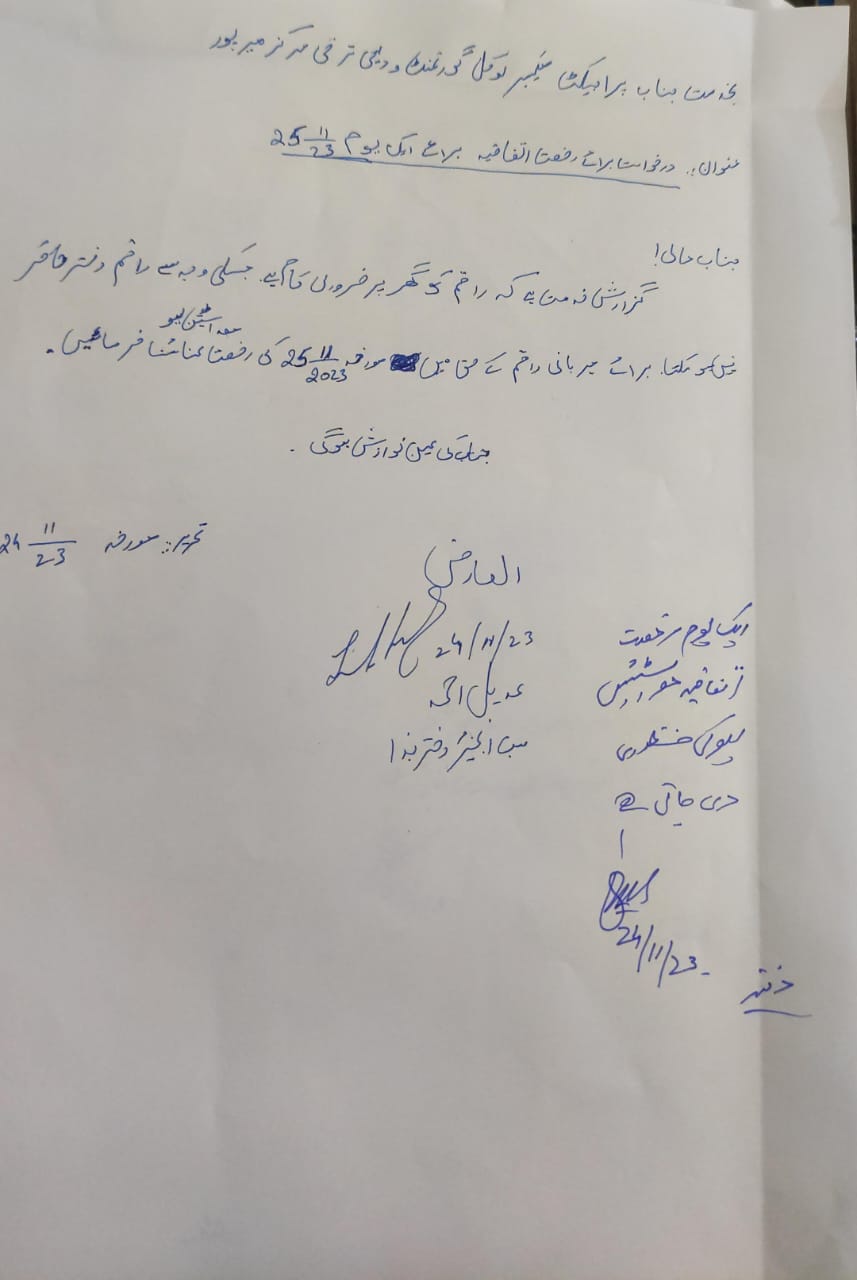 بخدمت جناب پراجیکٹ منیجر لوکل گورنمنٹ و دیہی ترقی مرکز میرپور
عنوان:۔ درخواست برائے رخصت اتفاقیہ برائے ایک یوم 25 11/23
جناب عالی!
گزارش خدمت ہے کہ راقم کو گھر پر ضروری کام ہے۔ جسکی وجہ سے راقم دفتر حاضر
نہیں ہو سکتا۔ برائے مہربانی راقم کے حق میں مورخہ 25 11/2023 کی رخصت معہ اسٹیشن لیو عنائت فرمائیں۔
جسکی عین نوازش ہوگی۔
تحریر:۔ مورخہ 24 11/23
العارض
24/11/23
عدیل احمد
سب انجینئر دفتر ہذا
ایک یوم رخصت
اتفاقیہ معہ اسٹیشن
لیو کی منظوری
دی جاتی ہے
24/11/23
دفتر